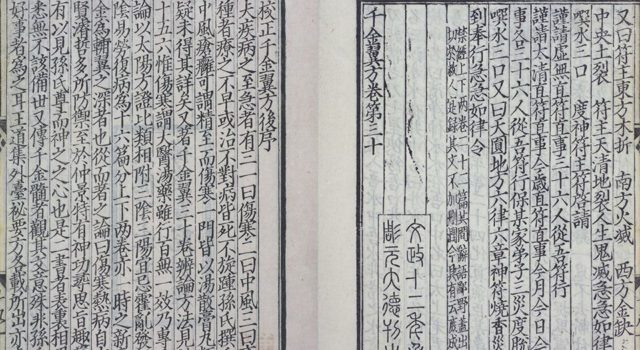 又曰符王東方木折 南方火滅 西方金缺
中央土裂 符主天清地裂人生鬼滅急急如律
噀水三口 度神符主符啓請
謹請虛無直符直事三十六人從五符行
謹請太清直符直事今歲直符直事今月今日今
事各二十六人從五符行保某家弟子三災度脫
噀水三口又曰天圓地方六律六章神符燒香災
到奉行急急如律令
千金翼方卷第三十
文政十二年
元大德
校正千金翼方後序
大疾病之至急者有三一曰傷寒二曰中風三曰瘡
種者療之不早或治不對病皆死不旋踵孫氏撰
中風瘡癰可謂精至而傷寒一門皆以湯散膏丸
疑未得其詳矣又著千金翼三十卷辨論方法見
十五六惟傷寒謂大人醫湯藥雖行百無一效乃專
論以太陽方證比類相附三陰三陽宜忌霍亂發
陰易勞復病爲十六篇分上下兩卷亦一時之新
金爲輔翼之深者也從而著之論曰傷寒熱病自
賢濬哲多所防禦至於仲景特有神功尋思旨趣
有以見孫氏尊而神之之心也是二書者表裏相
悉無不該備世又傳千金髓者觀其文意殊非孫
好事者爲之耳王道集外臺秘要方多載所出亦